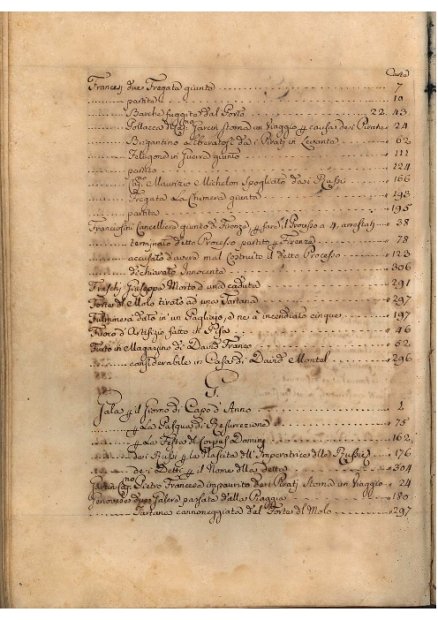 Carte
Francesj due Fregate giunte 7
partite 10
Barche fuggite dal Porto 22. 43
Pollacca Cap. Jarcin storna un Viaggio p causa dei Pirati 24
Brigantino liberatosi da i Piratj in Levante 62
Felugone in Guerra giunto 111
partito 124
Cap. Maurizio Michelon Spogliato dai Russi 166
Fregata La Chimera giunta 193
partita 195
Franceschini Cancelliere giunto di Firenze p fare il Processo a 4. arrestati 38
terminato detto Processo partito p Firenze 78
accusato d'avere mal Costruito il detto Processo 123
dichiarato Innocente 306
Freschj Giuseppe Morto d'una caduta 291
Forte del Molo tirato ad una Tartana 297
Fulmine dato in un Pagliajo, e ne à incendiato cinque 197
Fuoco d'Artifizio fatto in Pisa 46
Fuoco in Magazzino di David Franco 52
considerabile in Casa di David Montel 296
G.
Gala p il Giorno di Capo d'Anno 1
p La Pasqua di Resurrezione 75
p La Festa del Corpus Domini 162
Dei Russi p la Nascita dell'Imperatrice delle Russie 176
dei Detti p il Nome della detta 304
Cap.no Pietro Francese impaurito dai Piratj storna un Viaggio 24
Genovese due Galere passate dalla Piaggia 180
Tartana cannoneggiata dal Forte del Molo 297